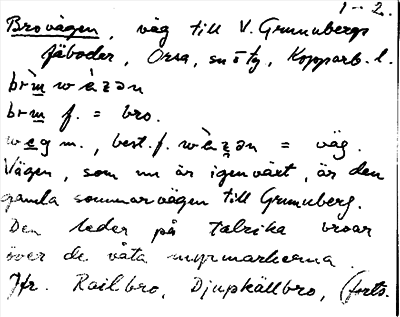 1-2.
Brovägen, väg till V. Grunubergs
fäboder, Orsa, sn o tg, Kopparb. l.
brm̀ wὲzən
brm f. = bro.
weg m., best. f. wὲzən = väg.
Vägen, som nu är igenväxt, är den
gamla sommarvägen till Grunuberg.
Den leder på talrika broar
över de våta myrmarkerna.
Jfr. Railbro, Djupkällbro, (forts.